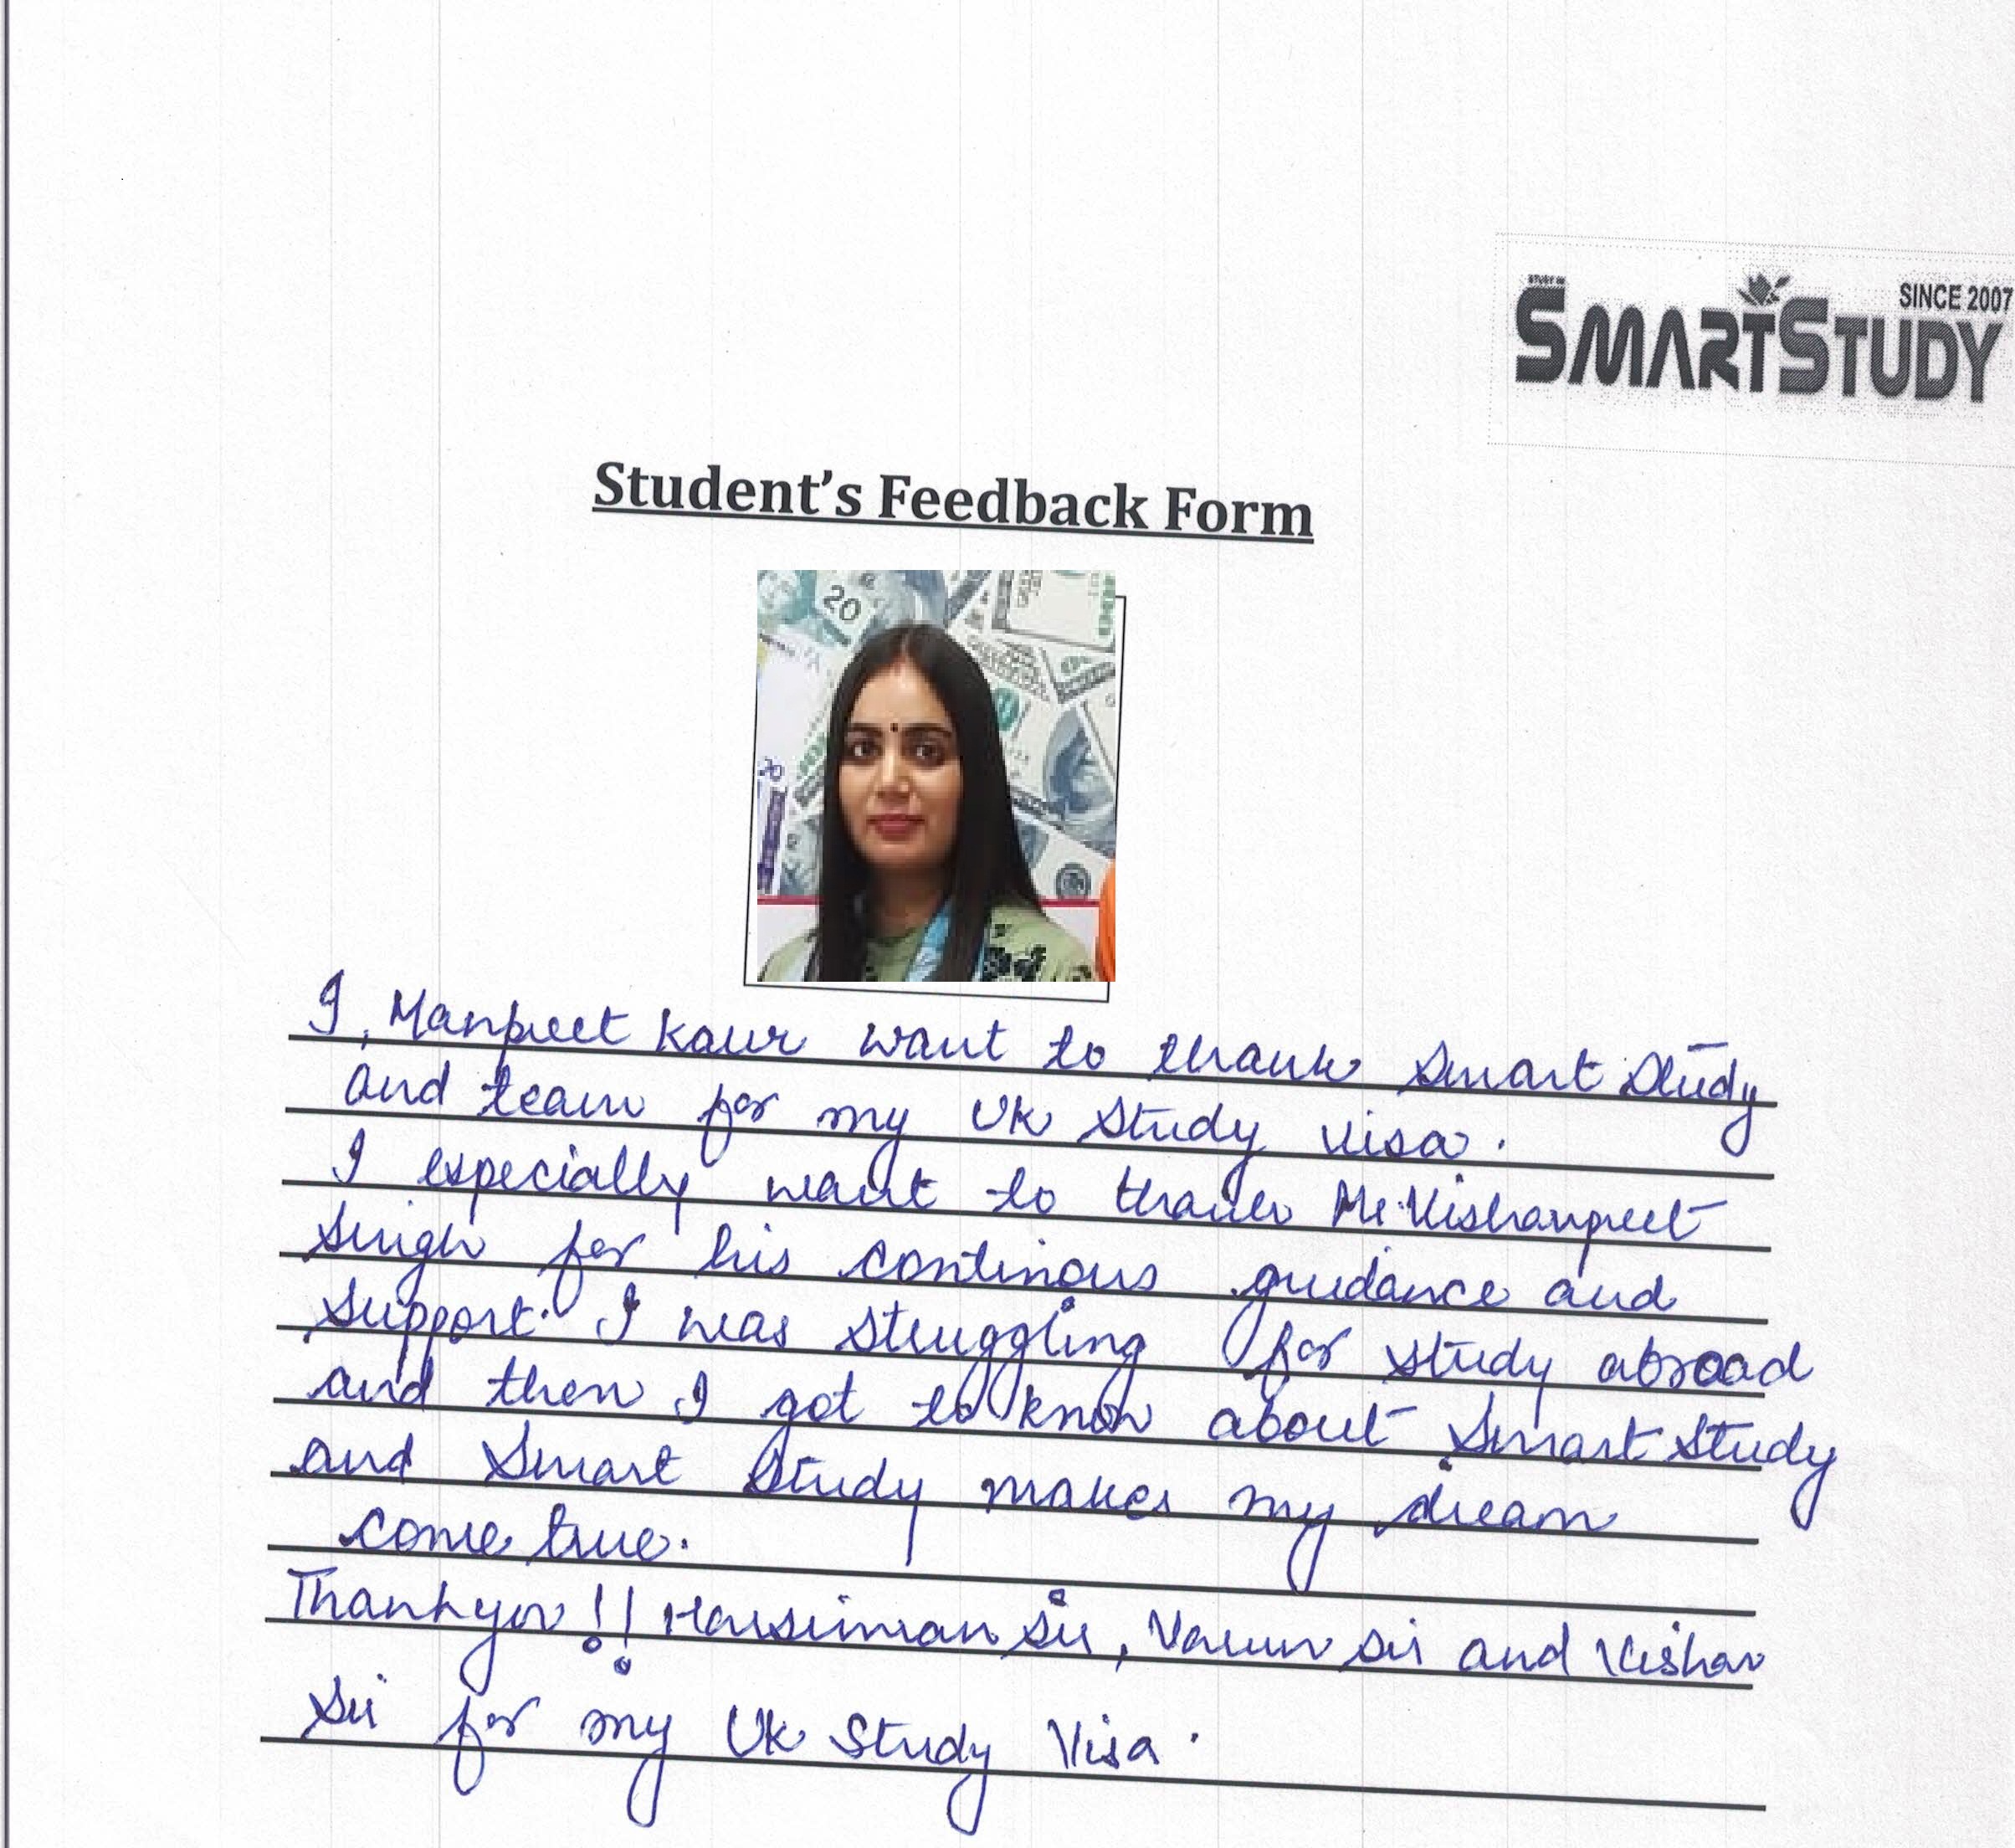 SINCE 2007
SMARTSTUDY
Student's Feedback Form
20
I, Manpreet Kaur want to thank Smart Study
and team for my UK Study Visa.
I especially want to thank Mr. Vishavpreet
Singh for his continous guidance and
support. I was struggling for study abroad
and then I got to know about Smart Study
and Smart Study makes my dream
come true.
Thankyou!! Harsimran Sir, Varun Sir and Vishav
Sir for my UK Study Visa.